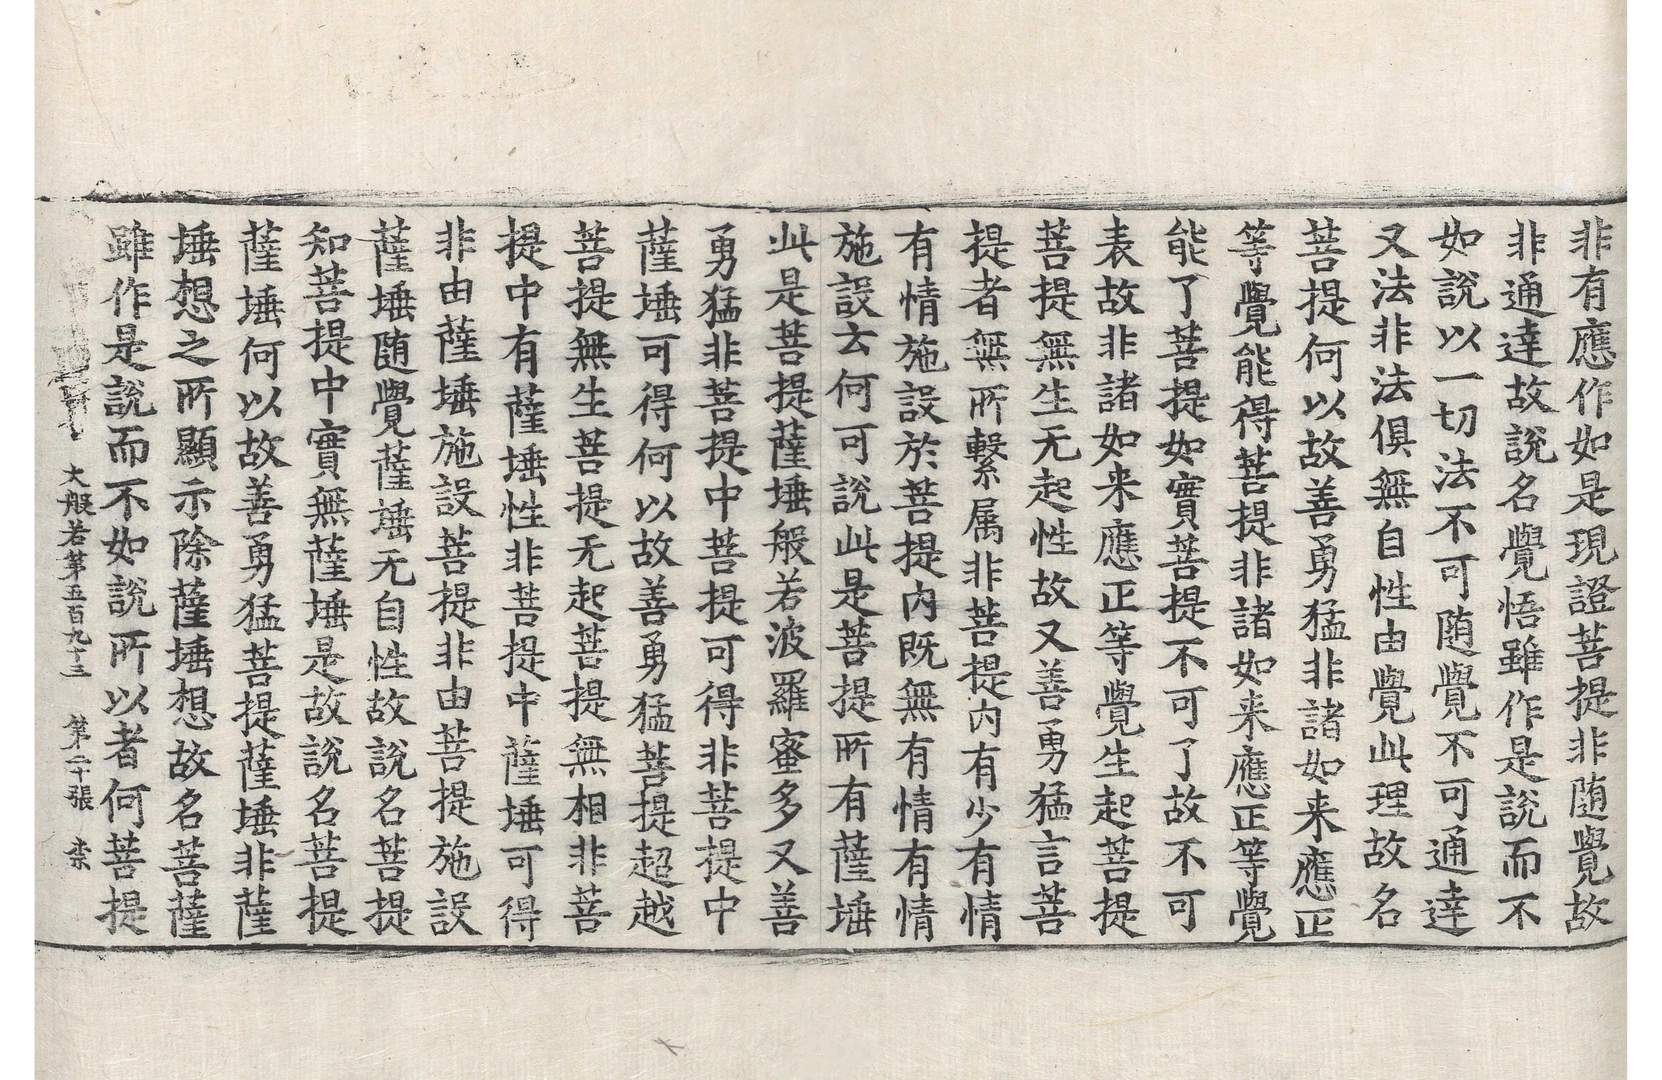 非有應作如是現證菩提非随覺故
非通達故說名覺悟雖作是說而不
如說以一切法不可随覺不可通達
又法非法俱無自性由覺此理故名
菩提何以故善勇猛非諸如来應正
等覺能得菩提非諸如来應正等覺
能了菩提如實菩提不可了故不可
表故非諸如来應正等覺生起菩提
菩提無生无起性故又善勇猛言菩
提者無所繋属非菩提内有少有情
有情施設於菩提内既無有情有情
施設云何可說此是菩提所有薩埵
此是菩提薩埵般若波羅蜜多又善
勇猛非菩提中菩提可得非菩提中
薩埵可得何以故善勇猛菩提超越
菩提無生菩提无起菩提無相非菩
提中有薩埵性非菩提中薩埵可得
非由薩埵施設菩提非由菩提施設
薩埵随覺薩埵无自性故說名菩提
知菩提中實無薩埵是故說名菩提
薩埵何以故善勇猛菩提薩埵非薩
埵想之所顯示除薩埵想故名菩薩
雖作是說而不如說所以者何菩提
大般若第五百九十三 第二十張 柰